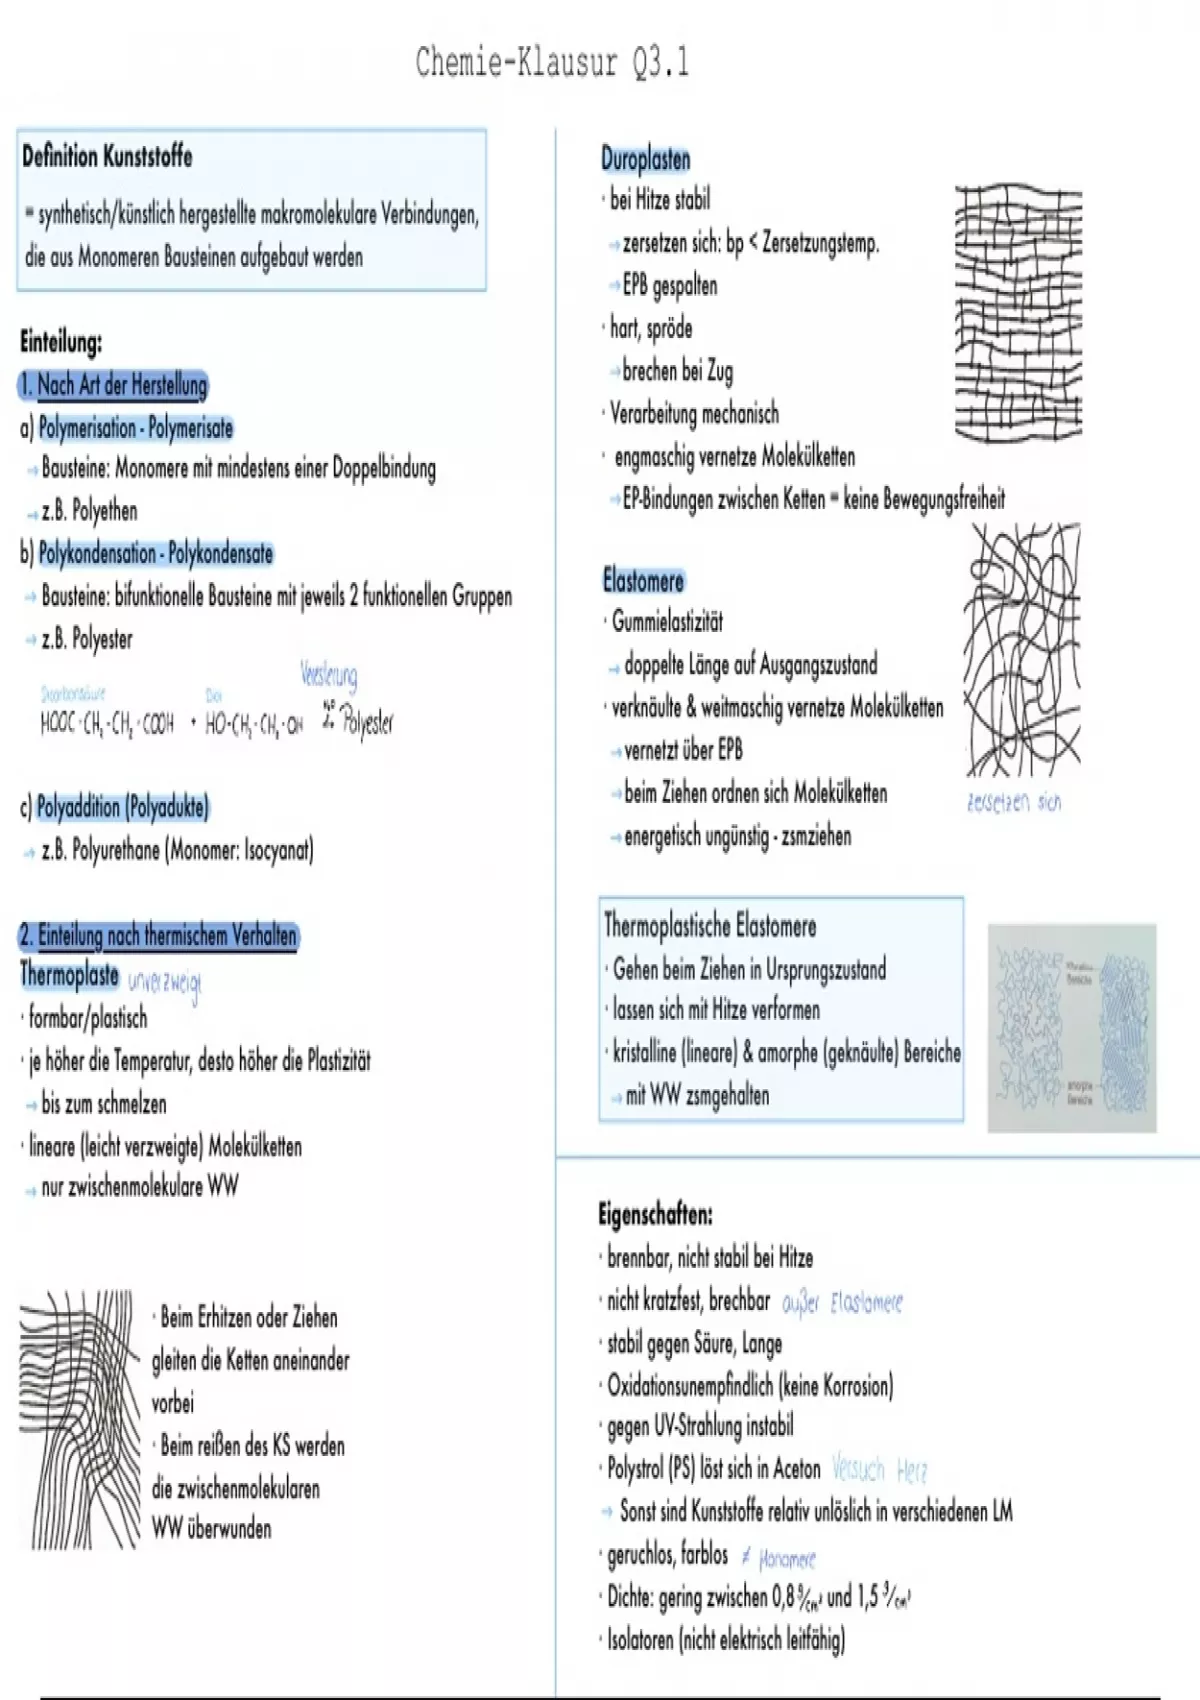 Chemie-Klausur Q3.1
Definition Kunststoffe
= synthetisch/künstlich hergestellte makromolekulare Verbindungen,
die aus Monomeren Bausteinen aufgebaut werden
Einteilung:
1. Nach Art der Herstellung
a) Polymerisation - Polymerisate
→ Bausteine: Monomere mit mindestens einer Doppelbindung
→ z.B. Polyethen
b) Polykondensation - Polykondensate
→ Bausteine: bifunktionelle Bausteine mit jeweils 2 funktionellen Gruppen
→ z.B. Polyester
Veresterung
Dicarbonsäure Diol
HOOC-CH₂-CH₂-COOH + HO-CH₂-CH₂-OH Polyester
c) Polyaddition (Polyadukte)
→ z.B. Polyurethane (Monomer: Isocyanat)
2. Einteilung nach thermischem Verhalten
Thermoplaste unverzweigt
· formbar/plastisch
· je höher die Temperatur, desto höher die Plastizität
→ bis zum schmelzen
· lineare (leicht verzweigte) Molekülketten
→ nur zwischenmolekulare WW
· Beim Erhitzen oder Ziehen
gleiten die Ketten aneinander
vorbei
· Beim reißen des KS werden
die zwischenmolekularen
WW überwunden
Duroplasten
· bei Hitze stabil
→ zersetzen sich: bp < Zersetzungstemp.
→ EPB gespalten
· hart, spröde
→ brechen bei Zug
· Verarbeitung mechanisch
· engmaschig vernetze Molekülketten
→ EP-Bindungen zwischen Ketten = keine Bewegungsfreiheit
Elastomere
· Gummielastizität
→ doppelte Länge auf Ausgangszustand
· verknäulte & weitmaschig vernetze Molekülketten
→ vernetzt über EPB
→ beim Ziehen ordnen sich Molekülketten
→ energetisch ungünstig - zsmziehen
zersetzen sich
Thermoplastische Elastomere
· Gehen beim Ziehen in Ursprungszustand
· lassen sich mit Hitze verformen
· kristalline (lineare) & amorphe (geknäulte) Bereiche
→ mit WW zsmgehalten
Bereiche
amorphe
Bereiche
Eigenschaften:
· brennbar, nicht stabil bei Hitze
· nicht kratzfest, brechbar außer Elastomere
· stabil gegen Säure, Lange
· Oxidationsunempfindlich (keine Korrosion)
· gegen UV-Strahlung instabil
· Polystrol (PS) löst sich in Aceton Versuch Herz
→ Sonst sind Kunststoffe relativ unlöslich in verschiedenen LM
· geruchlos, farblos ≠ Monomere
· Dichte: gering zwischen 0,8 g/cm³ und 1,5 g/cm³
· Isolatoren (nicht elektrisch leitfähig)